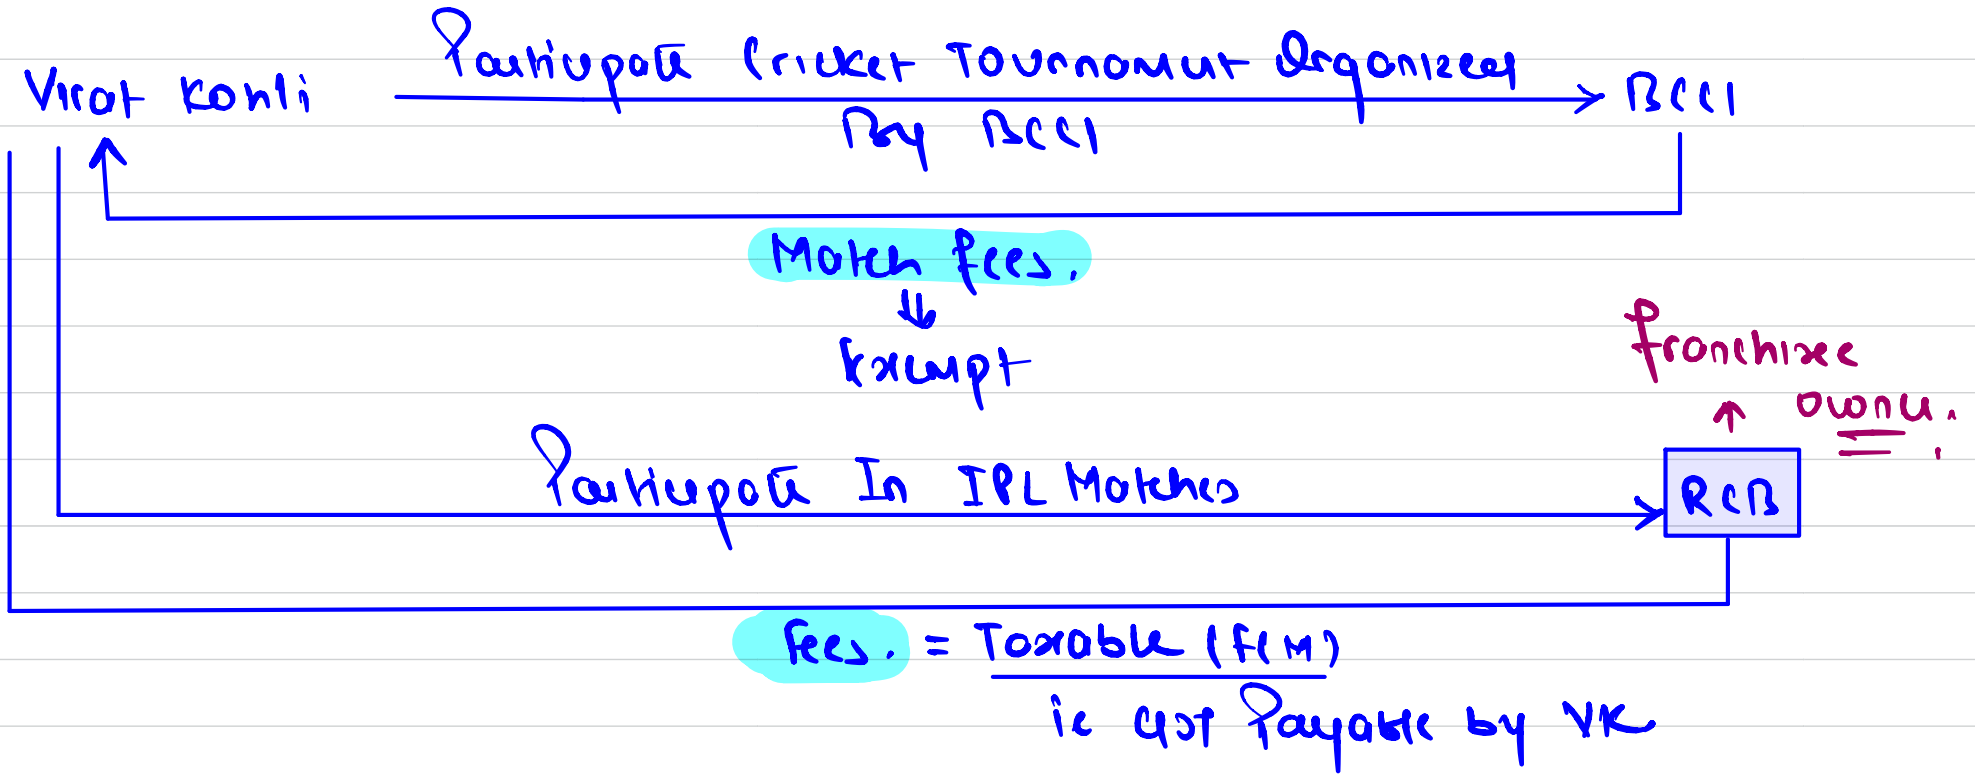 Virat Kohli
Participate Cricket Tournament Organized
By BCCI
BCCI
Match fees.
⇓
Exempt
franchisee
↑ owner.
Participate In IPL Matches
RCB
Fees. = Taxable (FCM)
ie GST Payable by VK